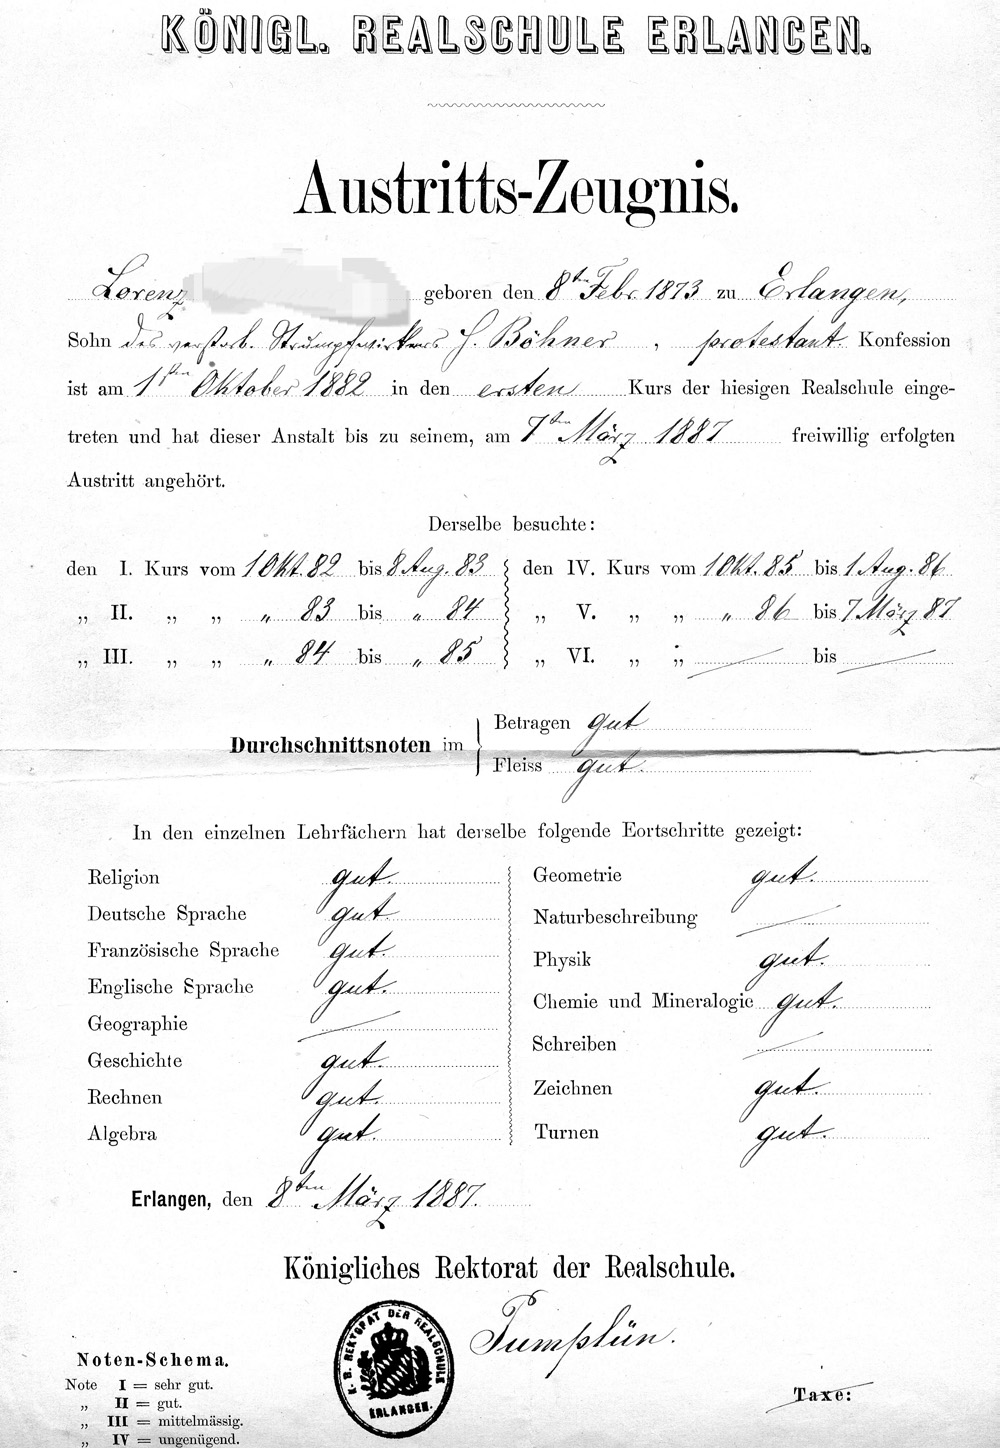 KÖNIGL. REALSCHULE ERLANGEN.
Austritts-Zeugnis.
Lorenz geboren den 8ten Febr. 1873 zu Erlangen,
Sohn des verstorb. Strumpfwirkers J. Böhner, protestant. Konfession
ist am 1sten Oktober 1882 in den ersten Kurs der hiesigen Realschule einge-
treten und hat dieser Anstalt bis zu seinem, am 7ten März 1887 freiwillig erfolgten
Austritt angehört.
Derselbe besuchte:
den I. Kurs vom 1 Okt. 82 bis 8 Aug. 83 den IV. Kurs vom 1 Okt. 85 bis 1 Aug. 86
„ II. „ „ „ 83 bis „ 84 „ V. „ „ „ 86 bis 7 März 87
„ III. „ „ „ 84 bis „ 85 „ VI. „ „ bis
Durchschnittsnoten im
Betragen gut
Fleiss gut.
In den einzelnen Lehrfächern hat derselbe folgende Eortschritte gezeigt:
Religion gut.
Deutsche Sprache gut.
Französische Sprache gut.
Englische Sprache gut.
Geographie
Geschichte gut.
Rechnen gut.
Algebra gut.
Geometrie gut.
Naturbeschreibung
Physik gut.
Chemie und Mineralogie gut.
Schreiben
Zeichnen gut.
Turnen gut.
Erlangen, den 8ten März 1887.
Königliches Rektorat der Realschule.
Pumplün.
K. B. REKTORAT DER REALSCHULE
ERLANGEN.
Noten-Schema.
Note I = sehr gut.
„ II = gut.
„ III = mittelmässig.
„ IV = ungenügend.
Taxe: